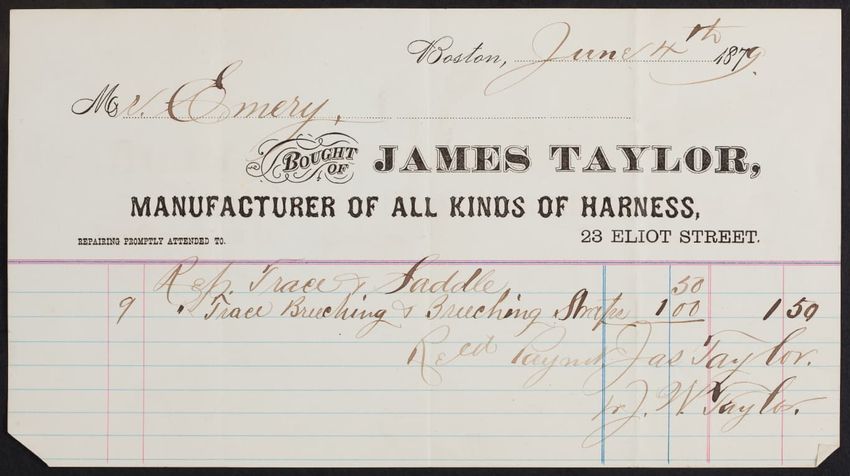 Boston, June 4th 1879.
Mr. Emery,
BOUGHT OF JAMES TAYLOR,
MANUFACTURER OF ALL KINDS OF HARNESS,
REPAIRING PROMPTLY ATTENDED TO. 23 ELIOT STREET.
Rep. Trace & Saddle 50
9 " Trace Breeching & Breeching Straps 1 00 1 50
Recd Paymt Jas Taylor.
pr J. W. Taylor.